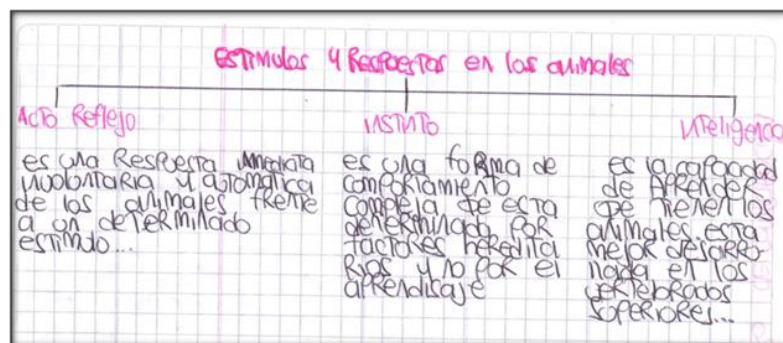 ESTIMULOS Y RESPUESTAS EN LOS ANIMALES
ACTO Reflejo
es una Respuesta inmediata
involontaria y automatica
de los animales frente
a un determinado
estimulo...
INSTINTO
es una forma de
comportamiento
compleja que esta
determinada por
factores heredita
rios y no por el
aprendisaje
inteligencia
es la capacidad
de aprender
que tienen los
animales. esta
mejor desarro-
llada en los
vertebrados
superiores...